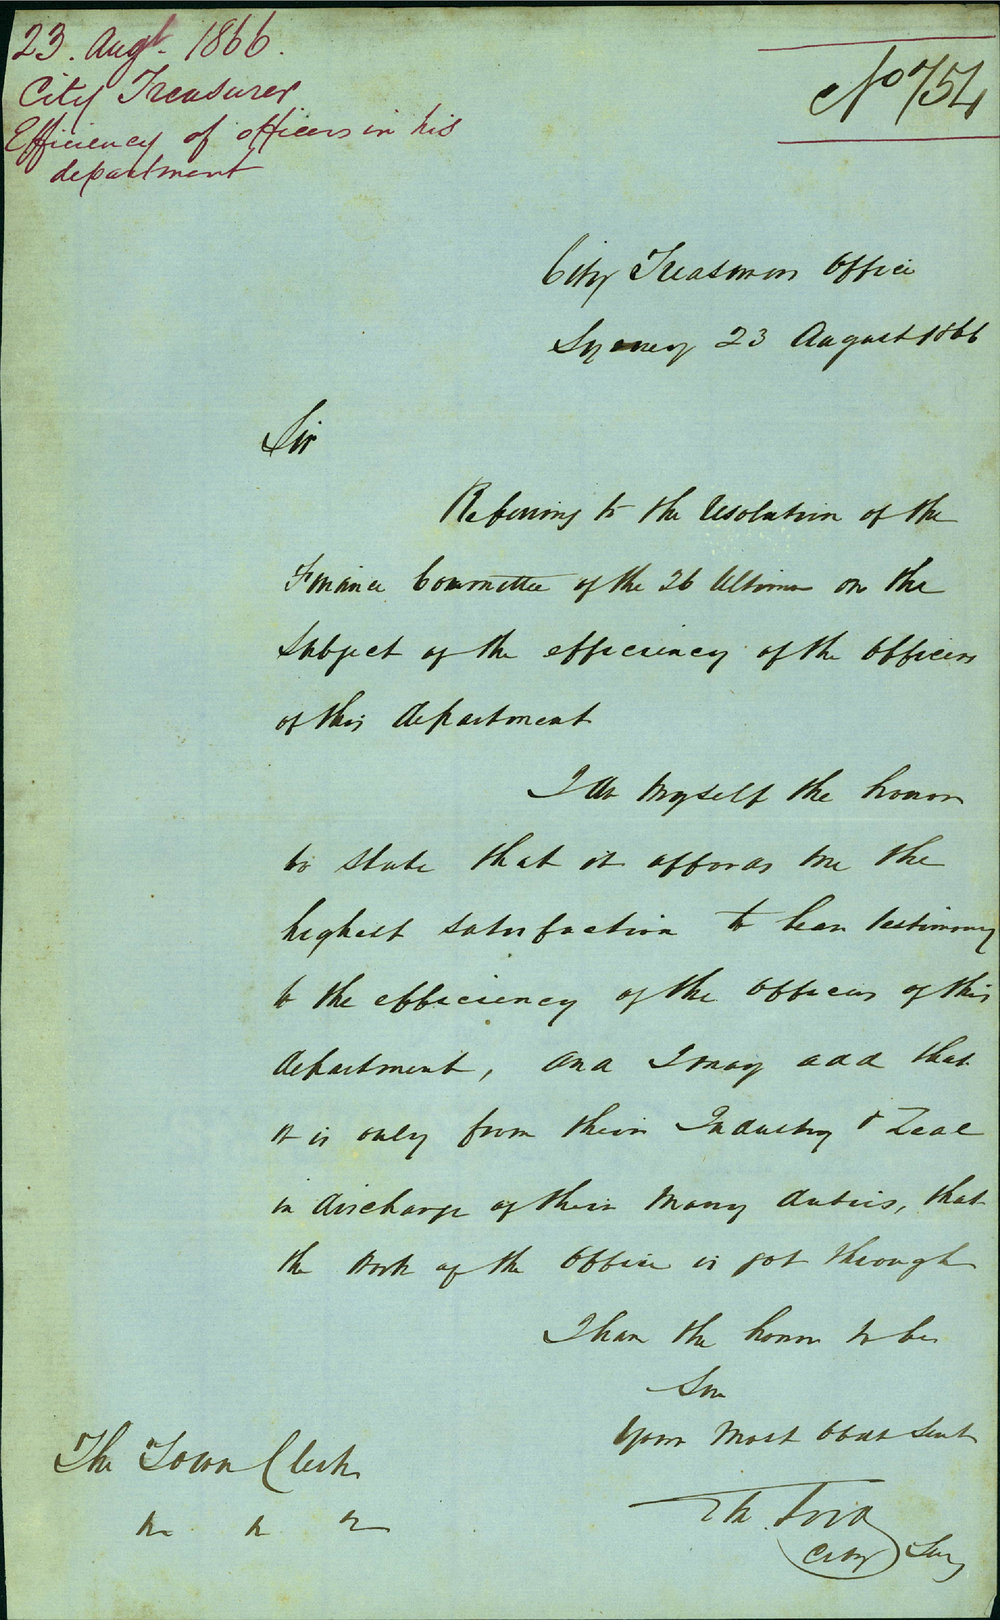 23. Augt. 1866.
City Treasurer
Efficiency of officers in his
department
No 754
City Treasurers Office
Sydney 23 August 1866
Sir
Referring to the Resolution of the
Finance Committee of the 26 Ultimo on the
Subject of the efficiency of the Officers
of this department
I do myself the honor
to state that it affords me the
highest satisfaction to bear testimony
to the efficiency of the Officers of this
department, and I may add that
it is only from their Industry & Zeal
in discharge of their many duties, that
the work of the Office is got through
I have the honor to be
Sir
Your Most Obdt Servt
The Town Clerk
City